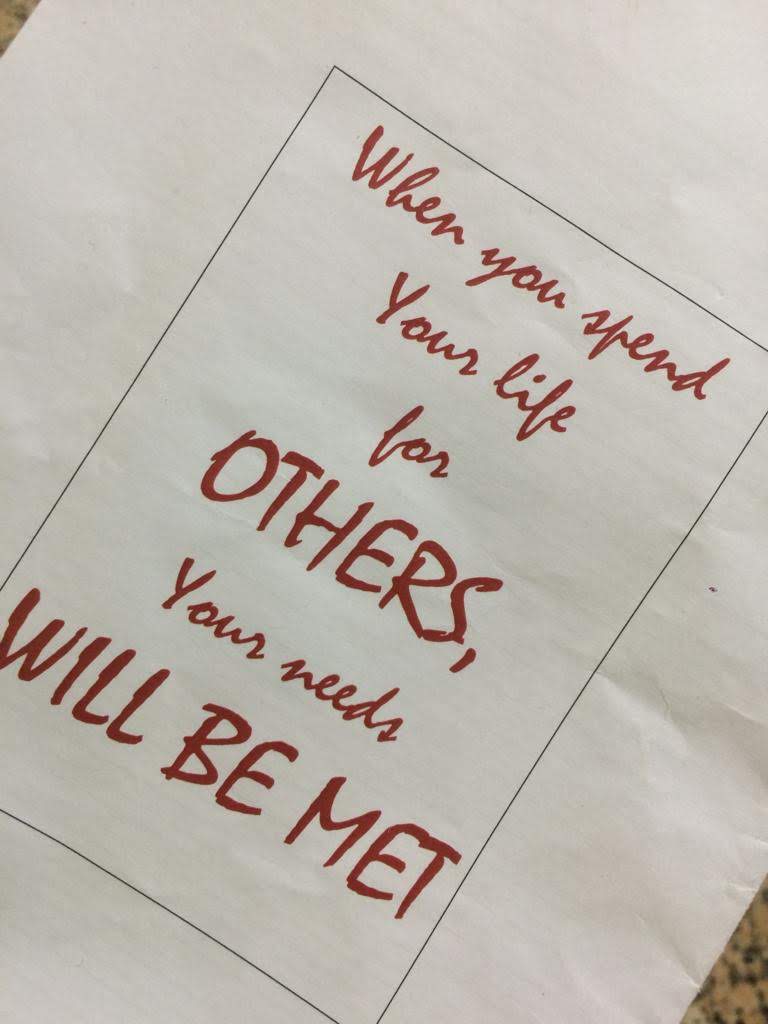 When you spend
Your life
for
OTHERS,
Your needs
WILL BE MET